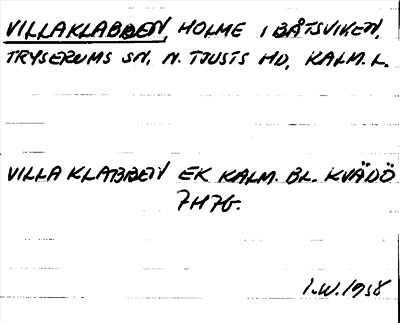 VILLAKLABBEN, HOLME I BÅTSVIKEN,
TRYSERUMS SN, N. TJUSTS HD, KALM. L.
VILLA KLABBEN EK KALM. BL. KVÄDÖ
7H7G.
I.W. 1958